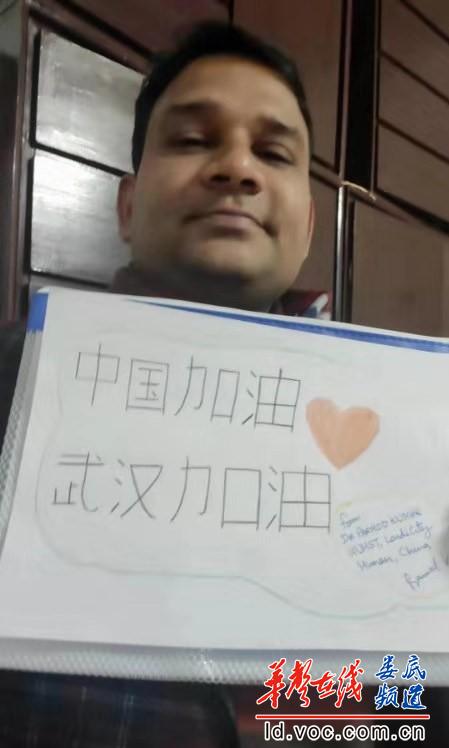 中国加油
武汉加油
from
HUHST, Loudi City
Hunan, China
华声在线
娄底
频道
ld.voc.com.cn